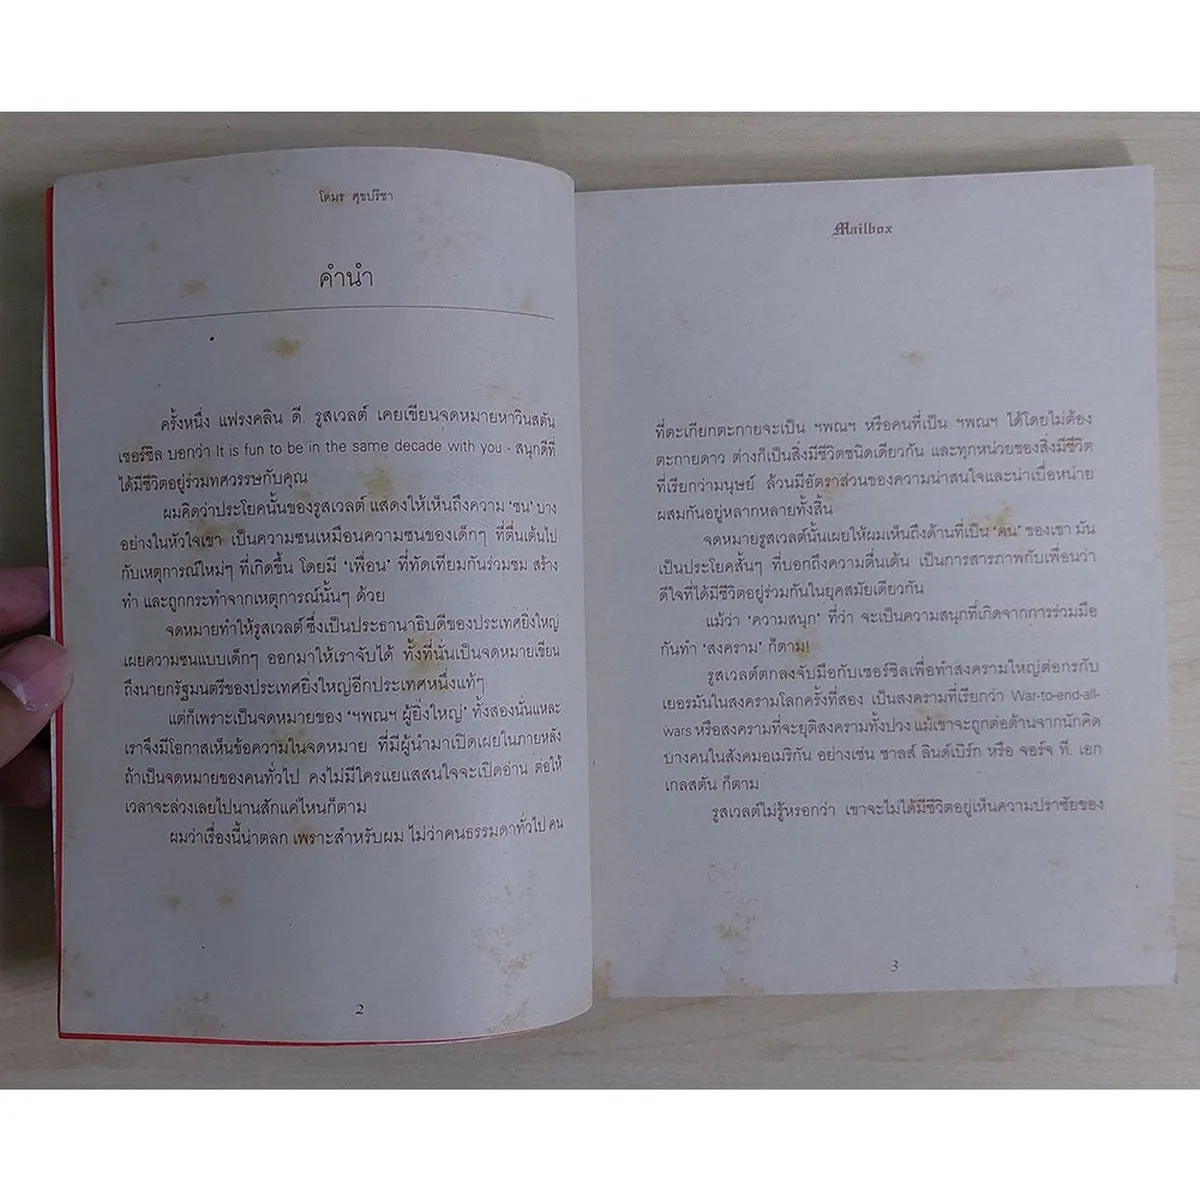 โตมร ศุขปรีชา
คำนำ
ครั้งหนึ่ง แฟรงคลิน ดี. รูสเวลต์ เคยเขียนจดหมายหาวินสตัน
เชอร์ชิล บอกว่า It is fun to be in the same decade with you - สนุกดีที่
ได้มีชีวิตอยู่ร่วมทศวรรษกับคุณ
ผมคิดว่าประโยคนั้นของรูสเวลต์ แสดงให้เห็นถึงความ ‘ซน’ บาง
อย่างในหัวใจเขา เป็นความซนเหมือนความซนของเด็กๆ ที่ตื่นเต้นไป
กับเหตุการณ์ใหม่ๆ ที่เกิดขึ้น โดยมี ‘เพื่อน’ ที่ทัดเทียมกันร่วมชม สร้าง
ทำ และถูกกระทำจากเหตุการณ์นั้นๆ ด้วย
จดหมายทำให้รูสเวลต์ ซึ่งเป็นประธานาธิบดีของประเทศยิ่งใหญ่
เผยความซนแบบเด็กๆ ออกมาให้เราจับได้ ทั้งที่นั่นเป็นจดหมายเขียน
ถึงนายกรัฐมนตรีของประเทศยิ่งใหญ่อีกประเทศหนึ่งแท้ๆ
แต่ก็เพราะเป็นจดหมายของ ‘ฯพณฯ ผู้ยิ่งใหญ่’ ทั้งสองนั่นแหละ
เราจึงมีโอกาสเห็นข้อความในจดหมาย ที่มีผู้นำมาเปิดเผยในภายหลัง
ถ้าเป็นจดหมายของคนทั่วไป คงไม่มีใครแยแสสนใจจะเปิดอ่าน ต่อให้
เวลาจะล่วงเลยไปนานสักแค่ไหนก็ตาม
ผมว่าเรื่องนี้น่าตลก เพราะสำหรับผม ไม่ว่าคนธรรมดาทั่วไป คน
2
Mailbox
ที่ตะเกียกตะกายจะเป็น ฯพณฯ หรือคนที่เป็น ฯพณฯ ได้โดยไม่ต้อง
ตะกายดาว ต่างก็เป็นสิ่งมีชีวิตชนิดเดียวกัน และทุกหน่วยของสิ่งมีชีวิต
ที่เรียกว่ามนุษย์ ล้วนมีอัตราส่วนของความน่าสนใจและน่าเบื่อหน่าย
ผสมกันอยู่หลากหลายทั้งสิ้น
จดหมายรูสเวลต์นั้นเผยให้ผมเห็นถึงด้านที่เป็น ‘คน’ ของเขา มัน
เป็นประโยคสั้นๆ ที่บอกถึงความตื่นเต้น เป็นการสารภาพกับเพื่อนว่า
ดีใจที่ได้มีชีวิตอยู่ร่วมกันในยุคสมัยเดียวกัน
แม้ว่า ‘ความสนุก’ ที่ว่า จะเป็นความสนุกที่เกิดจากการร่วมมือ
กันทำ ‘สงคราม’ ก็ตาม!
รูสเวลต์ตกลงจับมือกับเชอร์ชิลเพื่อทำสงครามใหญ่ต่อกรกับ
เยอรมันในสงครามโลกครั้งที่สอง เป็นสงครามที่เรียกว่า War-to-end-all-
wars หรือสงครามที่จะยุติสงครามทั้งปวง แม้เขาจะถูกต่อต้านจากนักคิด
บางคนในสังคมอเมริกัน อย่างเช่น ชาลส์ ลินด์เบิร์ก หรือ จอร์จ ที. เอก
เกลสตัน ก็ตาม
รูสเวลต์ไม่รู้หรอกว่า เขาจะไม่ได้มีชีวิตอยู่เห็นความปราชัยของ
3